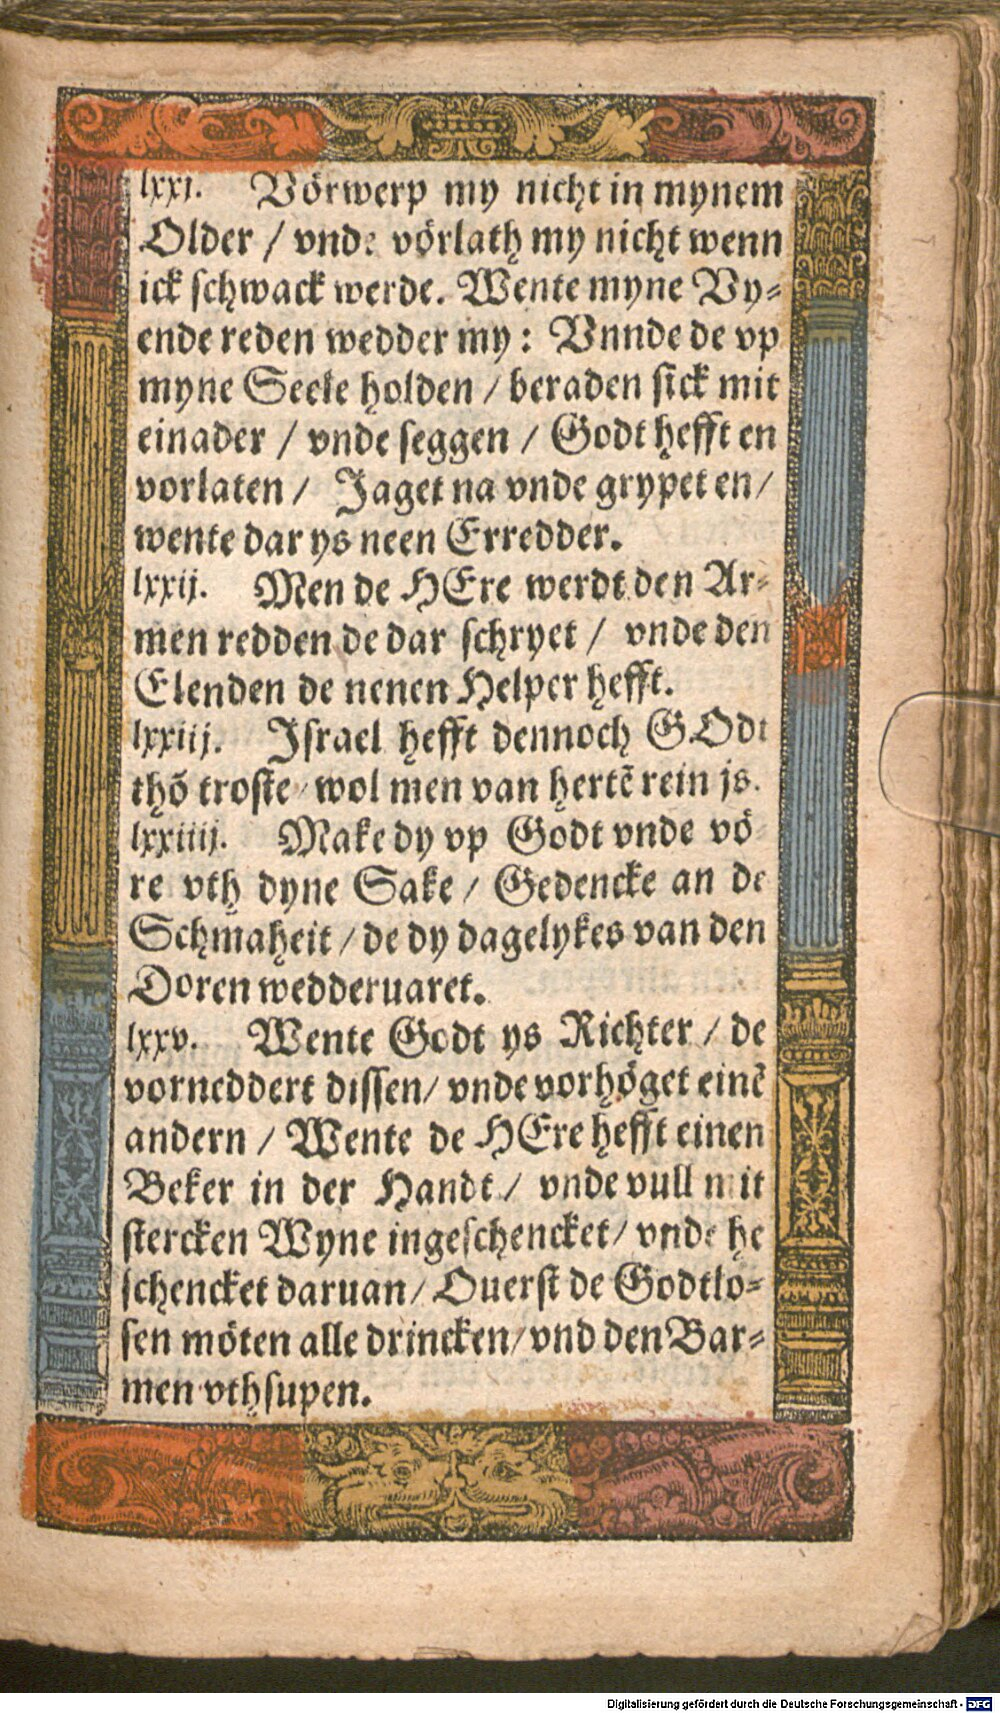 lxxj. Vörwerp my nicht in mynem
Older / vnde vörlath my nicht wenn
ick schwack werde. Wente myne Vy⸗
ende reden wedder my : Vnnde de vp
myne Seele holden / beraden sick mit
einader / vnde seggen / Godt hefft en
vorlaten / Jaget na vnde grypet en /
wente dar ys neen Erredder.
lxxij. Men de HEre werdt den Ar⸗
men redden de dar schryet / vnde den
Elenden de nenen Helper hefft.
lxxiij. Israel hefft dennoch GOdt
thö troste / wol men van hertē rein js.
lxxiiij. Make dy vp Godt vnde vö
re vth dyne Sake / Gedencke an de
Schmaheit / de dy dagelykes van den
Doren wedderuaret.
lxxv. Wente Godt ys Richter / de
vorneddert dissen / vnde vorhöget einē
andern / Wente de HEre hefft einen
Beker in der Handt / vnde vull mit
stercken Wyne ingeschencket / vnde he
schencket daruan / Ouerst de Godtlo⸗
sen möten alle drincken / vnd den Bar⸗
men vthsupen.
Digitalisierung gefördert durch die Deutsche Forschungsgemeinschaft - DFG